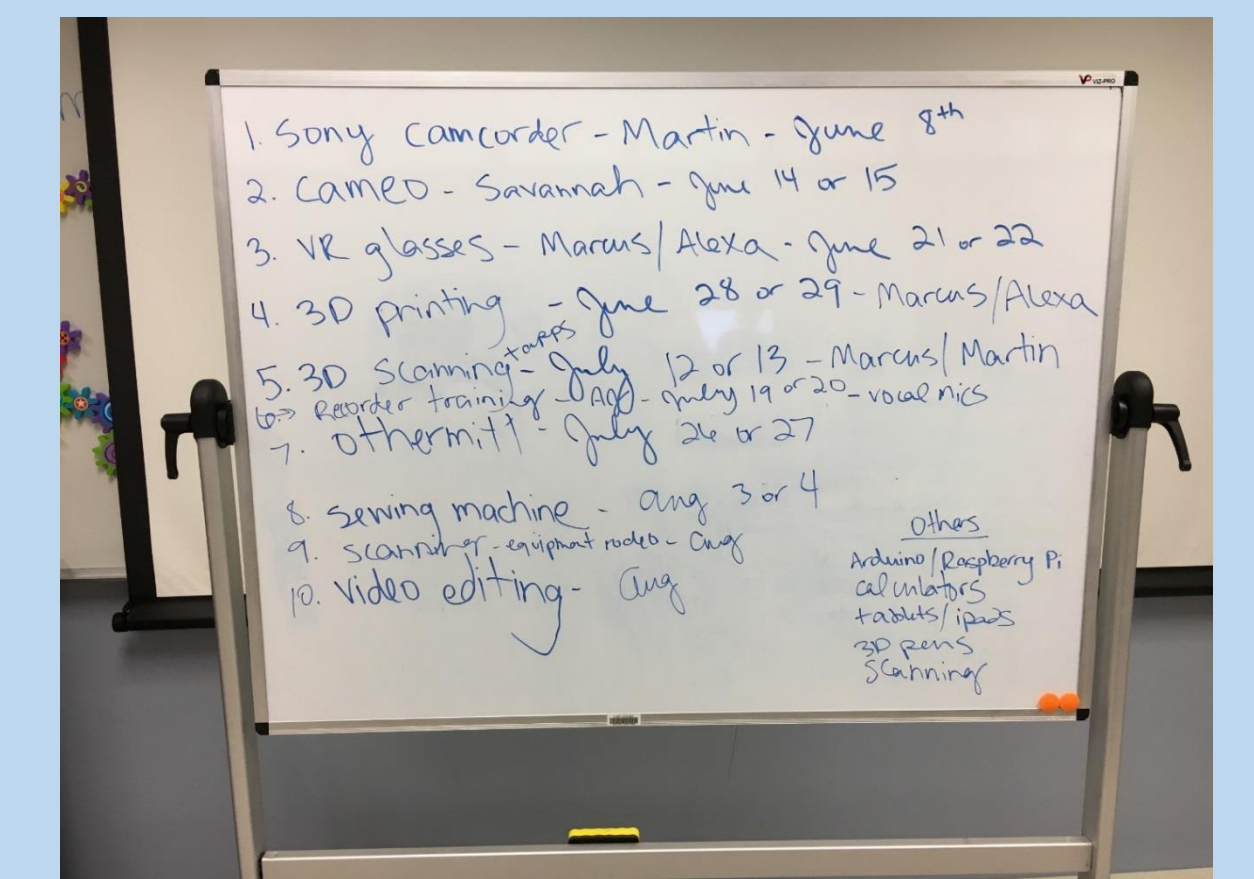 VIZ-PRO
1. Sony camcorder - Martin - June 8th
2. Cameo - Savannah - June 14 or 15
3. VR glasses - Marcus/Alexa - June 21 or 22
4. 3D printing - June 28 or 29 - Marcus/Alexa
5. 3D scanning + apps - July 12 or 13 - Marcus/Martin
6 → Recorder training - - July 19 or 20 - vocal mics
7. othermill - July 26 or 27
8. sewing machine - aug 3 or 4
9. scanning - equipmat rodeo - aug
10. Video editing - aug
others
Arduino/Raspberry Pi
calculators
tablets/ipads
3D pens
scanning